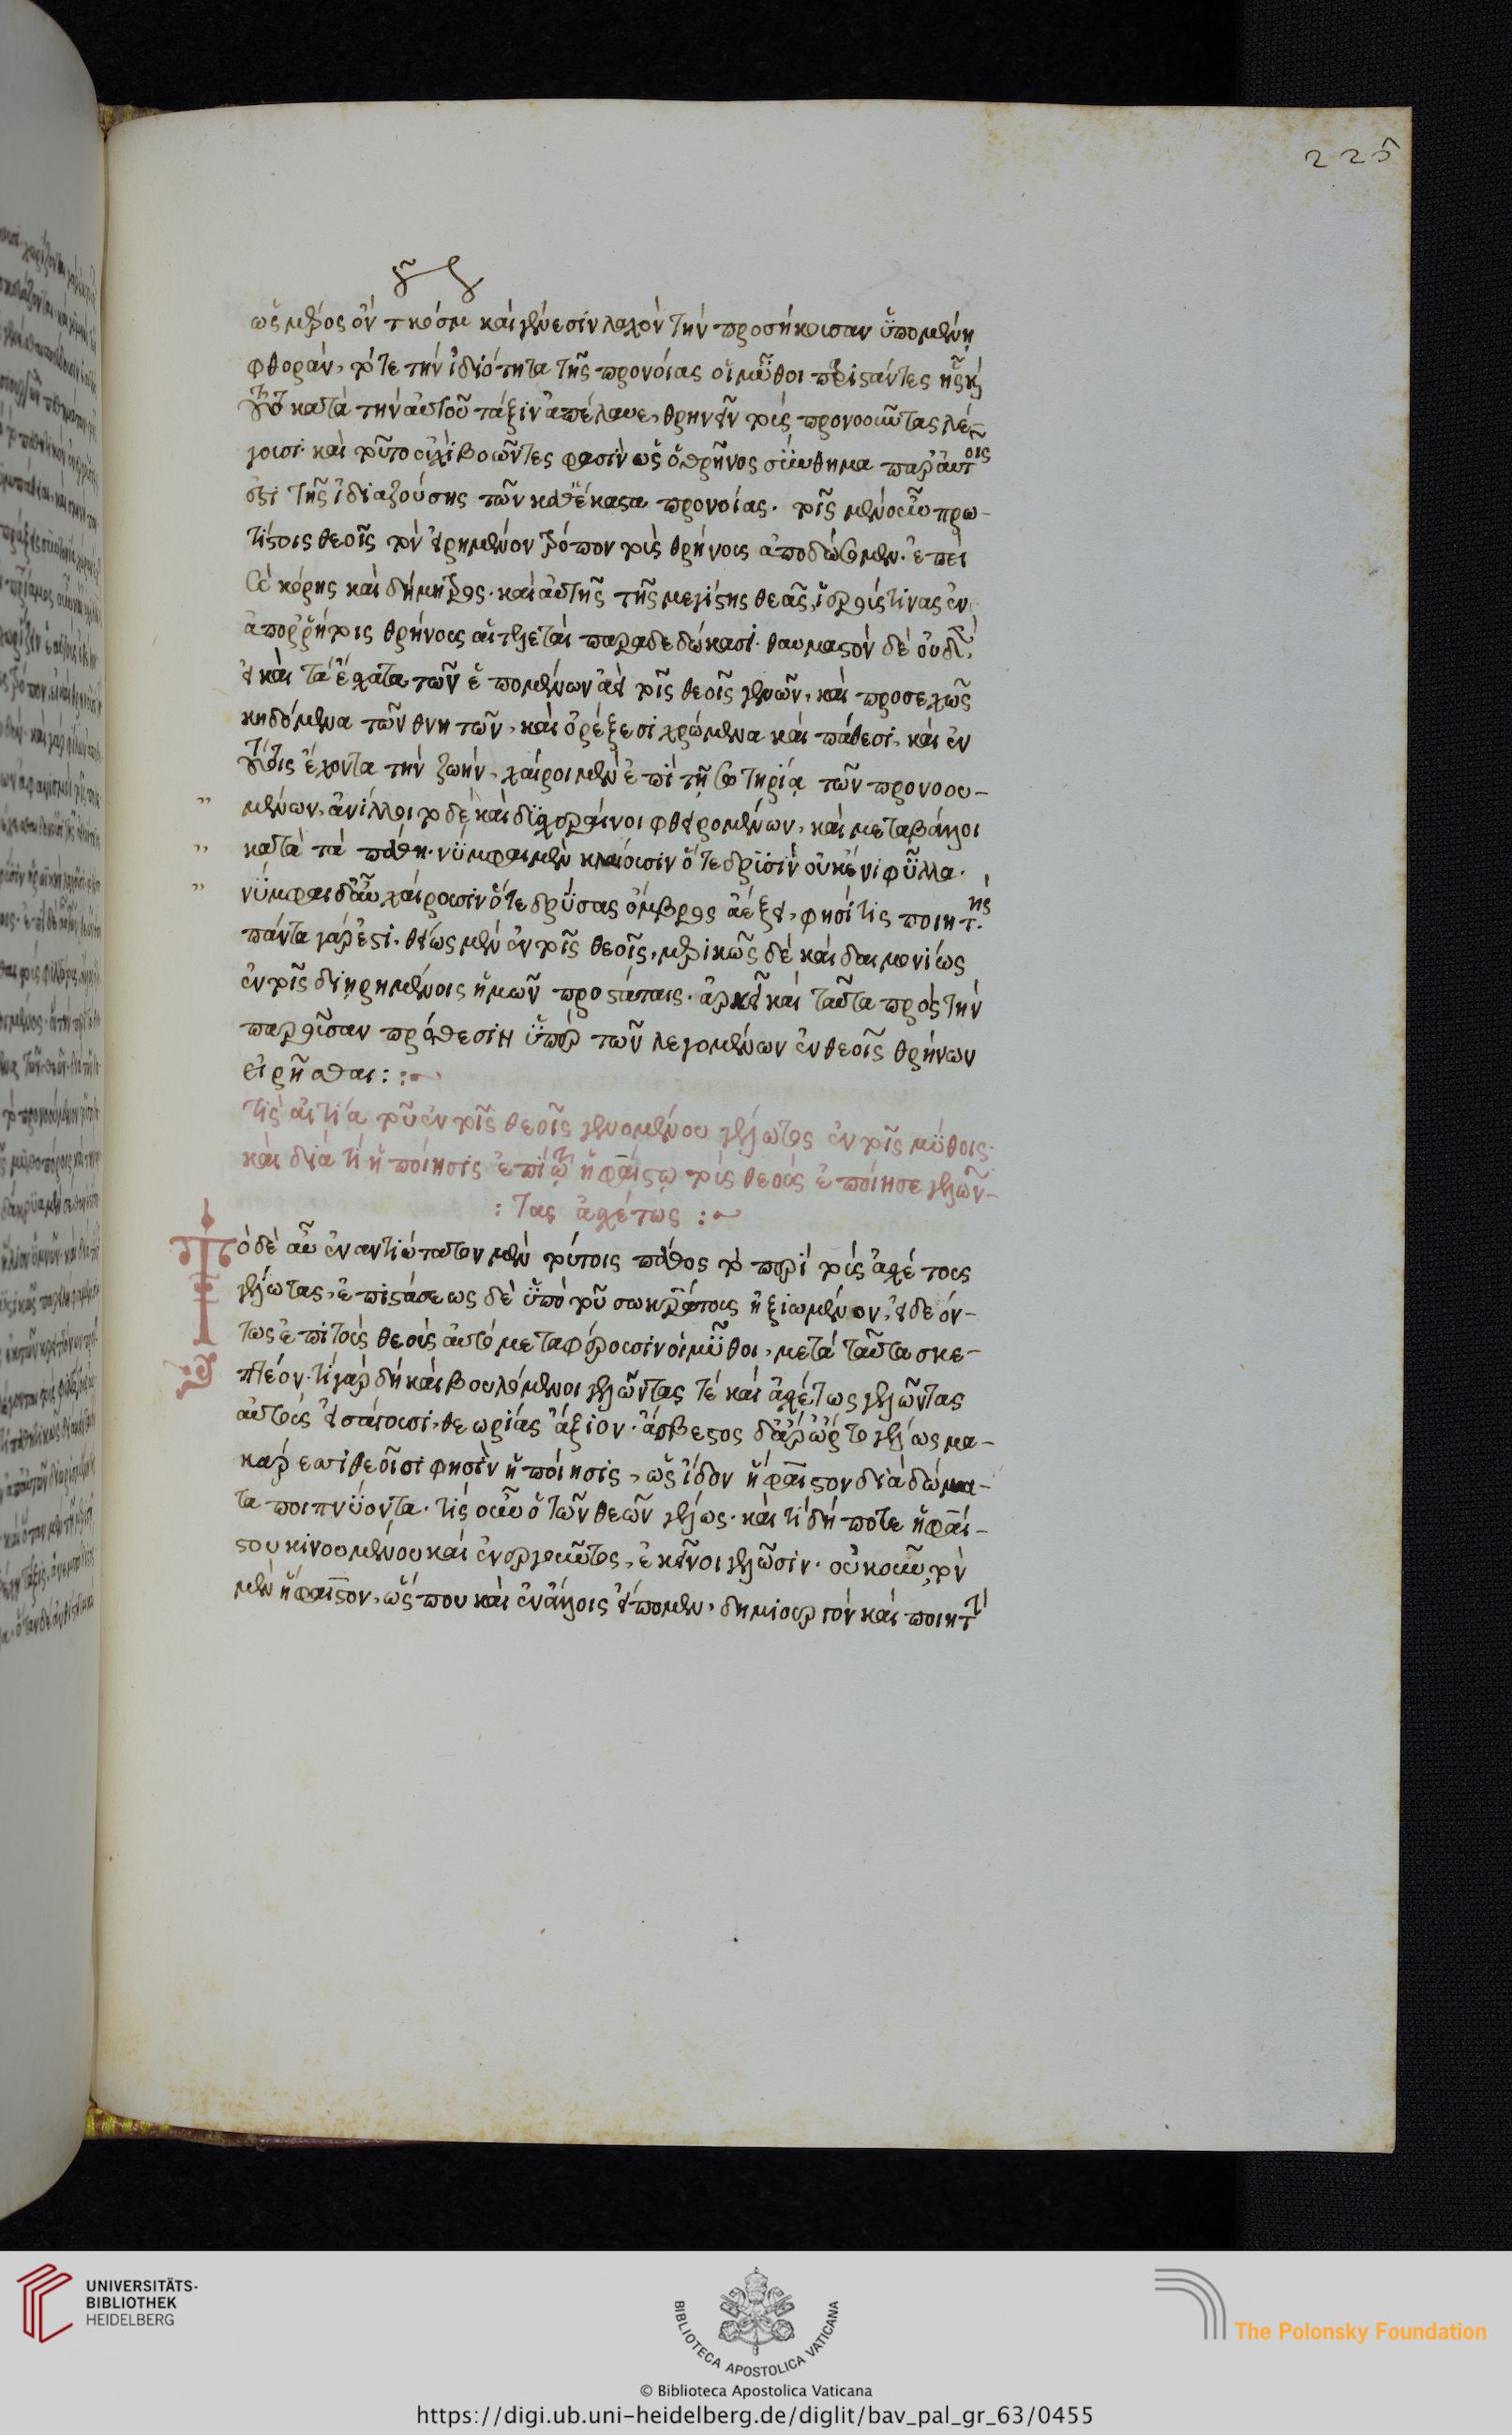 225
ὡς μέρος ὂν τοῦ κόσμου καὶ γένεσιν λαχὸν τὴν προσήκουσαν ὑπομένῃ
φθοράν, τότε τὴν ἰδιότητα τῆς προνοίας οἱ μῦθοι περιϊστάντες ἧς καὶ
τοῦτο κατὰ τὴν αὐτοῦ τάξιν ἀπέλαυε, θρηνεῖν τοὺς προνοοῦντας λέ-
γουσι· καὶ τοῦτο οὐχὶ βοῶντες φασὶν ὡς ὁ θρῆνος σύνθημα παρ' αὐτοῖς
ἐστὶ τῆς ἰδιαζούσης τῶν καθέκαστα προνοίας. τοῖς μὲν οὖν πρω-
τίστοις θεοῖς τὸν εἰρημένον τρόπον τοὺς θρήνους ἀποδώσομεν. ἐπεὶ
καὶ κόρης καὶ δήμητρος. καὶ αὐτῆς τῆς μεγίστης θεᾶς, ἱερούς τινας ἐν
ἀπορρήτοις θρήνους αἱ τελεταὶ παραδεδώκασι. θαυμαστὸν δὲ οὐδὲν
εἰ καὶ τὰ ἔσχατα τῶν ἑπομένων ἀεὶ τοῖς θεοῖς γενῶν, καὶ προσεχῶς
κηδόμενα τῶν θνητῶν, καὶ ὀρέξεσι χρώμενα καὶ πάθεσι, καὶ ἐν
τούτοις ἔχοντα τὴν ζωήν, χαίροι μὲν ἐπὶ τῇ σωτηρίᾳ τῶν προνοου-
μένων, ἀνίλλοιτο δὲ καὶ δυσχεραίνοι φθειρομένων, καὶ μεταβάλλοι
κατὰ τὰ πάθη. νύμφαι μὲν κλαίουσιν ὅτε δρυσὶν οὐκ ἔνι φύλλα.
νύμφαι δ' αὖ χαίρουσιν ὅτε δρύας ὄμβρος ἀέξει, φησί τις ποιητής.
πάντα γάρ ἐστι. θείως μὲν ἐν τοῖς θεοῖς, μερικῶς δὲ καὶ δαιμονίως
ἐν τοῖς διῃρημένοις ἡμῶν προστάταις. ἀρκεῖ καὶ ταῦτα πρὸς τὴν
παροῦσαν πρόθεσιν ὑπὲρ τῶν λεγομένων ἐν θεοῖς θρήνων
εἰρῆσθαι:
τίς αἰτία τοῦ ἐν τοῖς θεοῖς γενομένου γέλωτος ἐν τοῖς μύθοις.
καὶ διὰ τί ἡ ποίησις ἐπὶ τῷ ἡφαίστῳ τοὺς θεοὺς ἐποίησε γελῶν-
:τας ἀσχέτως:
Τὸ δὲ αὖ ἐναντιώτατον μὲν τούτοις πάθος τὸ περὶ τοὺς ἀσχέτους
γέλωτας, ἐπιστάσεως δὲ ὑπὸ τοῦ σωκράτους ἠξιωμένον, εἰ δεόν-
τως ἐπὶ τοὺς θεοὺς αὐτὸ μεταφέρουσιν οἱ μῦθοι, μετὰ ταῦτα σκε-
πτέον. τί γὰρ δὴ καὶ βουλόμενοι γελῶντας τὲ καὶ ἀσχέτως γελῶντας
αὐτοὺς εἰσάγουσι, θεωρίας ἄξιον. ἄσβεστος δ' ἄρ' ὦρτο γέλως μα-
κάρεσσι θεοῖσι φησὶν ἡ ποίησις, ὡς ἴδον ἥφαιστον διὰ δώμα-
τα ποιπνύοντα. τίς οὖν ὁ τῶν θεῶν γέλως. καὶ τί δή ποτε ἡφαί-
στου κινουμένου καὶ ἐνεργοῦντος, ἐκεῖνοι γελῶσιν. οὐκοῦν τὸν
μὲν ἥφαιστον, ὥς που καὶ ἐν ἄλλοις εἴπομεν, δημιουργὸν καὶ ποιητὴν
UNIVERSITÄTS-
BIBLIOTHEK
HEIDELBERG
BIBLIOTECA APOSTOLICA VATICANA
© Biblioteca Apostolica Vaticana
The Polonsky Foundation
https://digi.ub.uni-heidelberg.de/diglit/bav_pal_gr_63/0455